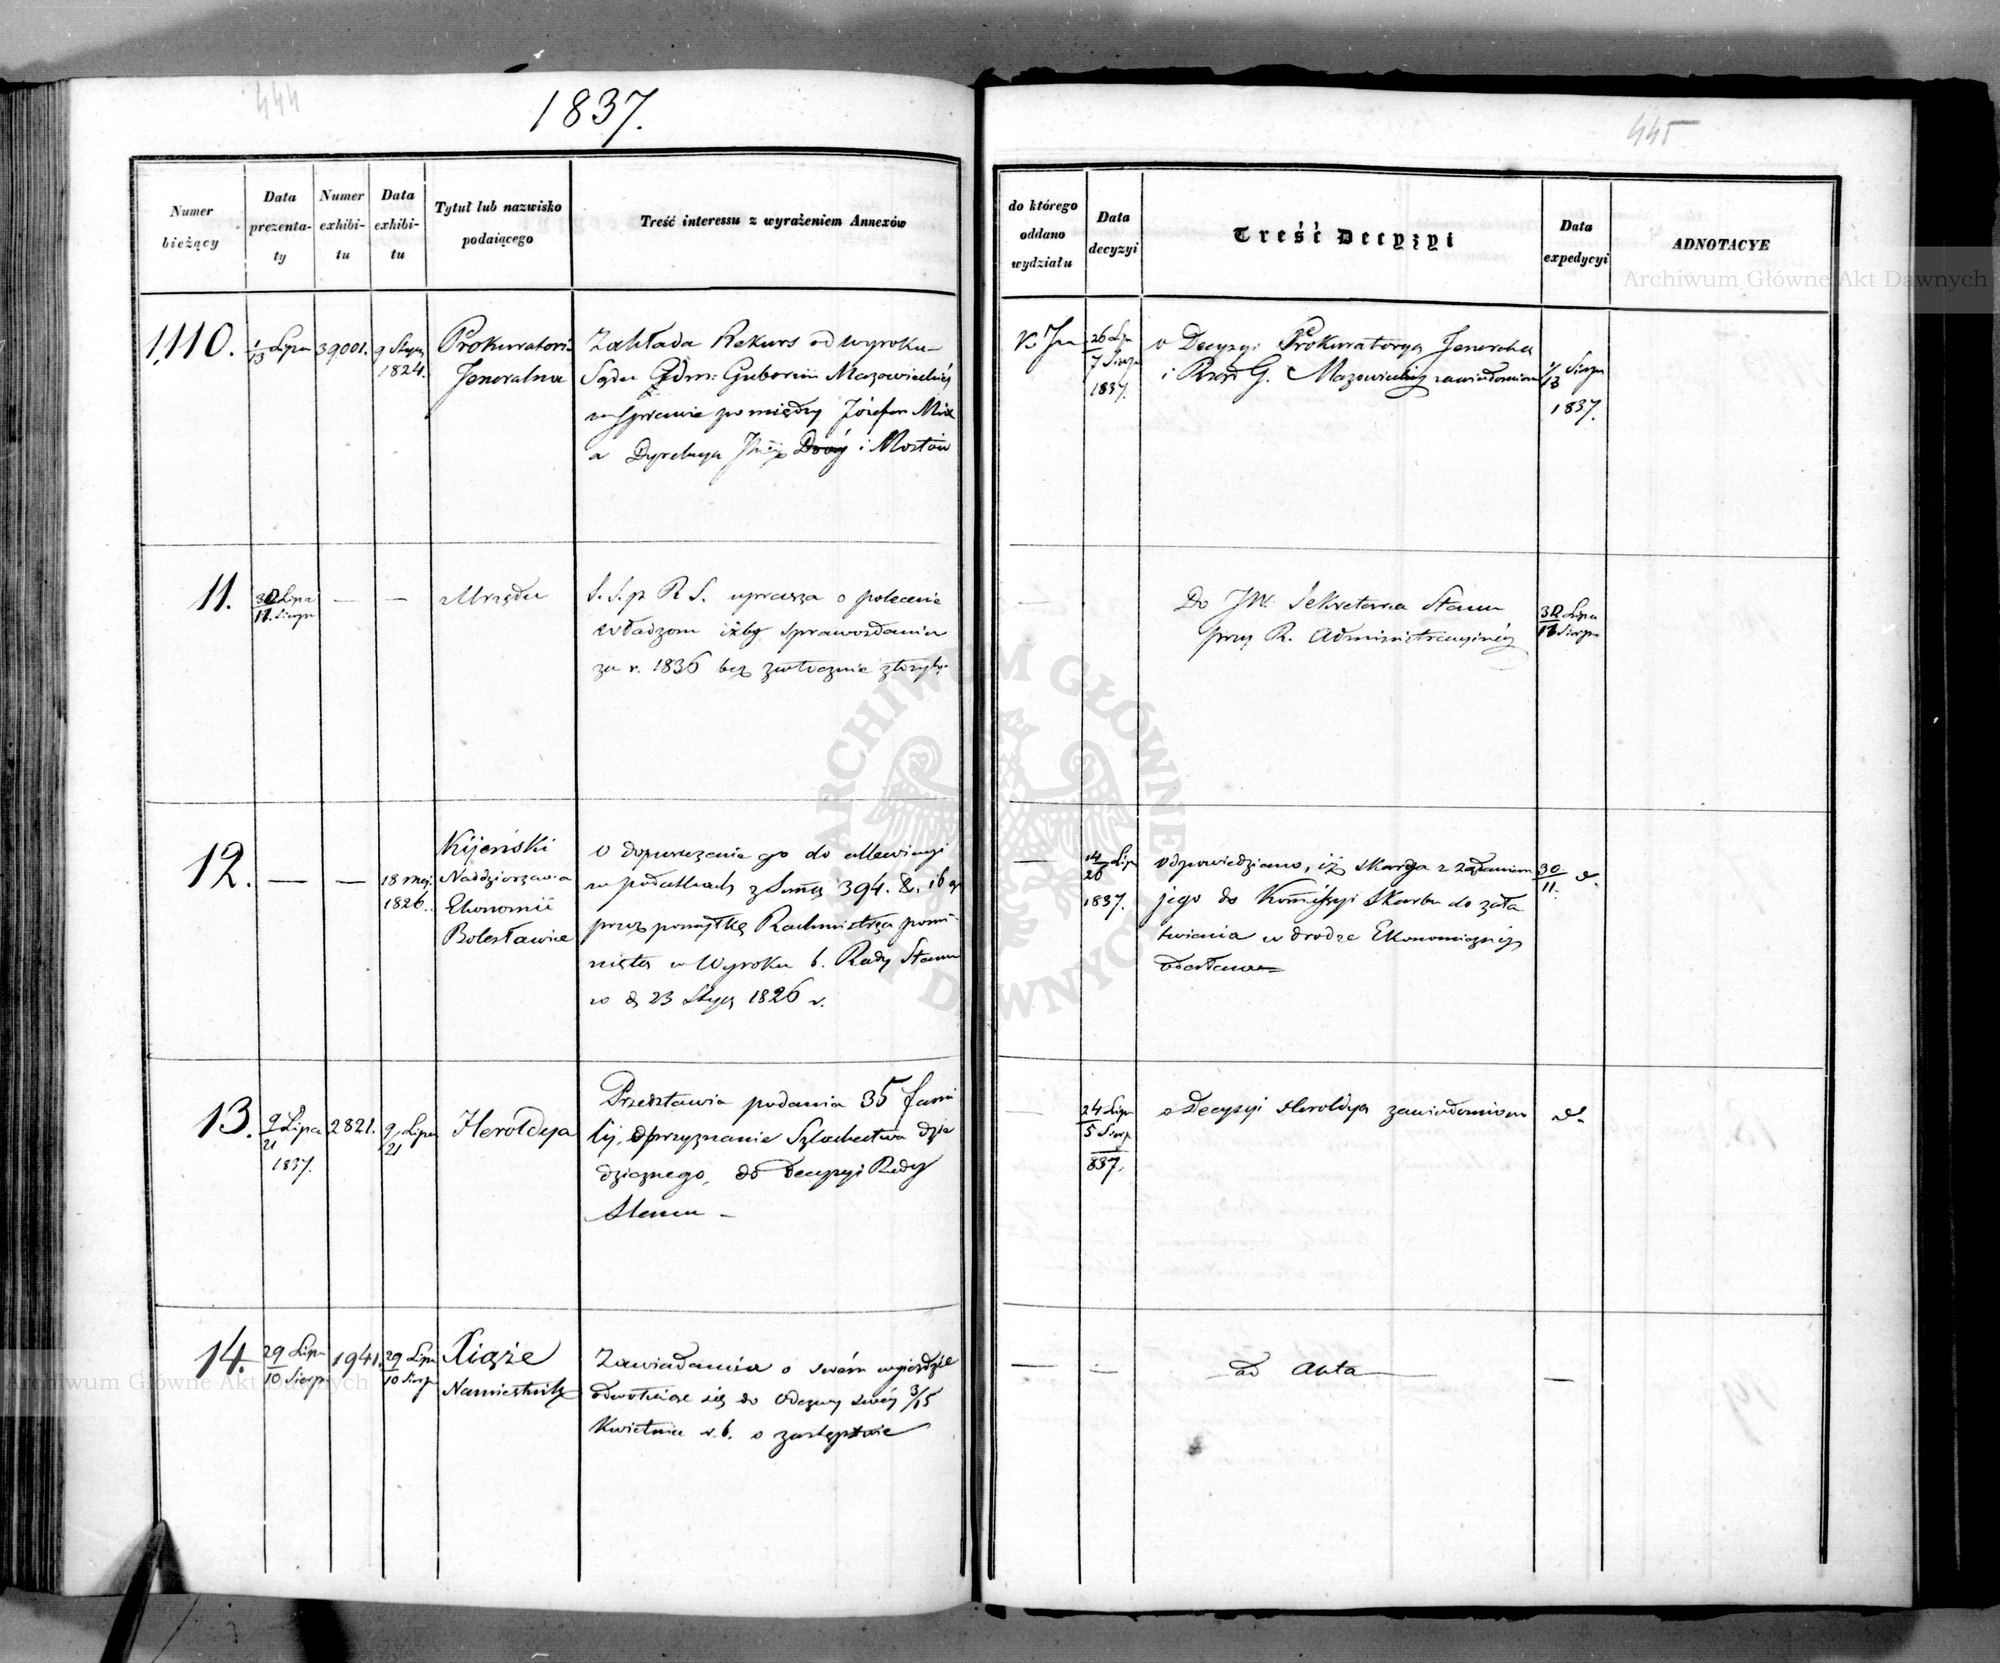 444
1837.
Numer bieżący
Data prezentaty
Numer exhibitu
Data exhibitu
Tytuł lub nazwisko podaiącego
Treść interessu z wyrażeniem Annexów
1,110.
1/13 Lipca
39001.
9 Stycz 1824.
Prokuratoria
Jeneralna
Zakłada Rekurs od wyroku
Sądu Adm: Gubernii Mazowieckiéj
w sprawie pomiędzy Józefem
a Dyrekcyą Dróg i Mostów
11.
30 Lipca
11 Sierp
—
—
Urzędu
S. S. p R S. uprasza o polecenie
władzom iżby sprawozdania
za r. 1836 bez zwłocznie złożyły
12.
—
—
18 maj
1826.
Kijeński
Naddzierżawca
Ekonomii
Bolesławice
O dopuszczenie go do allewiacyi
w podatkach z Summą 394. 8. 16 gr
przez pomyłkę Rachmistrza pomi-
niętą w Wyroku b. Rady Stanu
w d 23 Stycz 1826 r.
13.
9 Lipca
21
1837.
2821.
9 Lipca
21
Heroldya
Przedstawia podania 35 fami
lij, o przyznanie Szlachectwa dzie
dzicznego, do decyzyi Rady
Stanu –
14.
29 Lipc
10 Sierp
1941.
29 Lipc
10 Sierp
Xiąże
Namiestnik
Zawiadamia o swém wyjeździe
odwołując się do Odezwy swéj 3/15
Kwietnia r. b. o zastępstwie
445
do którego oddano wydziału
Data decyzyi
Treść Decyzyi
Data expedycyi
ADNOTACYE
26 Lip
7 Sierp
1837.
o Decyzyi Prokuratorya Jeneralna
i Rząd G. Mazowiecki zawiadomione
1/13 Sierp
1837.
—
Do JW. Sekretarza Stanu
przy R. Administracyjnéj
30 Lipca
11 Sierpn
—
14 Lip
26
1837.
odpowiedziano, iż skarga z żądaniem
jego do Kommissyi Skarbu do zała
twienia w drodze Ekonomicznéj
odesłana
30
11.
—
24 Lip
5 Sierp
837.
o decyzyi Heroldya zawiadomiona
—
—
ad Akta
—
Archiwum Główne Akt Dawnych
Archiwum Główne Akt Dawnych
ARCHIWUM GŁÓWNE AKT DAWNYCH